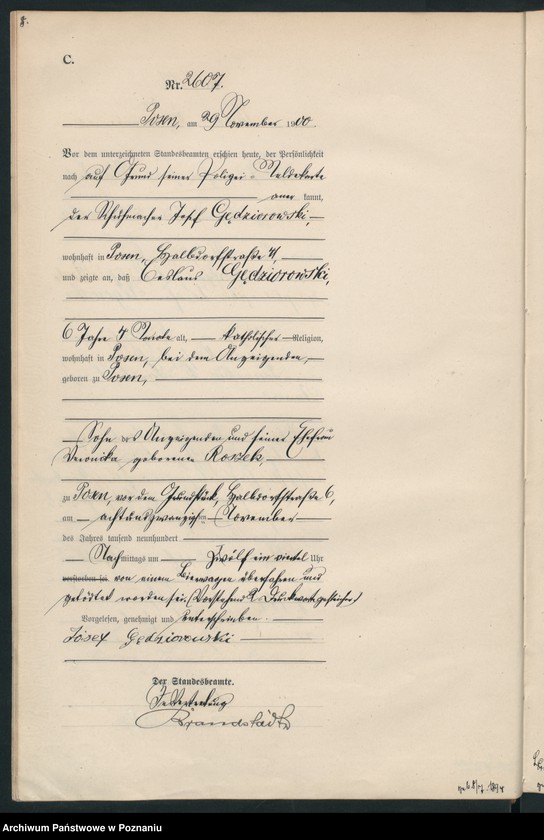 8.
C.
Nr. 2607.
Posen, am 29 November 1900.
Vor dem unterzeichneten Standesbeamten erschien heute, der Persönlichkeit
nach auf Grund seiner Polizei-Meldekarte
aner kannt,
der Schuhmacher Josef Gędziorowski,
wohnhaft in Posen, Halbdorfstraße 4,
und zeigte an, daß Ceslaus Gędziorowski,
6 Jahre 4 Monate alt, katholischer Religion,
wohnhaft in Posen, bei dem Anzeigenden,
geboren zu Posen,
Sohn des Anzeigenden und seiner Ehefrau
Veronika geborenen Roszek,
zu Posen, vor dem Grundstück, Halbdorfstraße 6,
am achtundzwanzigsten November
des Jahres tausend neunhundert
Nachmittags um zwölf ein viertel Uhr
verstorben sei von einem Bierwagen überfahren und
getödtet worden sei. (Vorstehend 2 Druckworte gestrichen)
Vorgelesen, genehmigt und unterschrieben
Józef Gędziorowski
Der Standesbeamte.
In Vertretung
Brandstädt
Archiwum Państwowe w Poznaniu